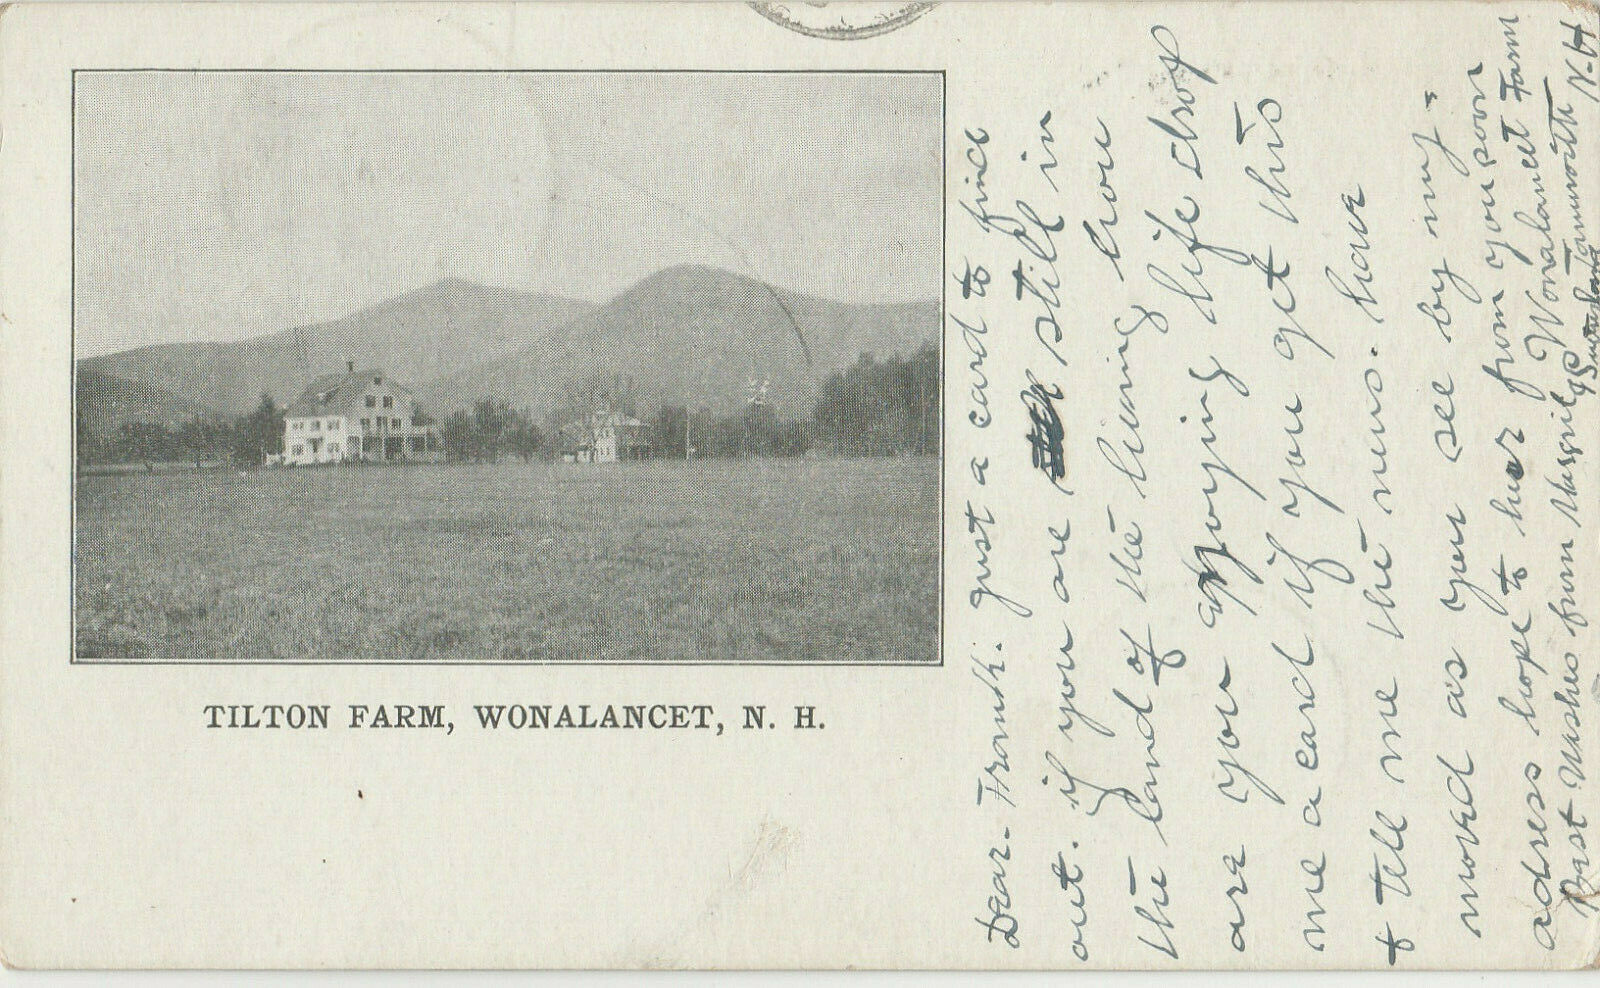 TILTON FARM, WONALANCET, N. H.
Dear. Frank. Just a card to find
out. if you are still in
the land of the living how
are you enjoying life drop
me a card if you get this
& tell me the news. have
moved as you see by my-
adress hope to hear from you soon
Best Wishes from
Wonalancet Farm
Tamworth
N-H